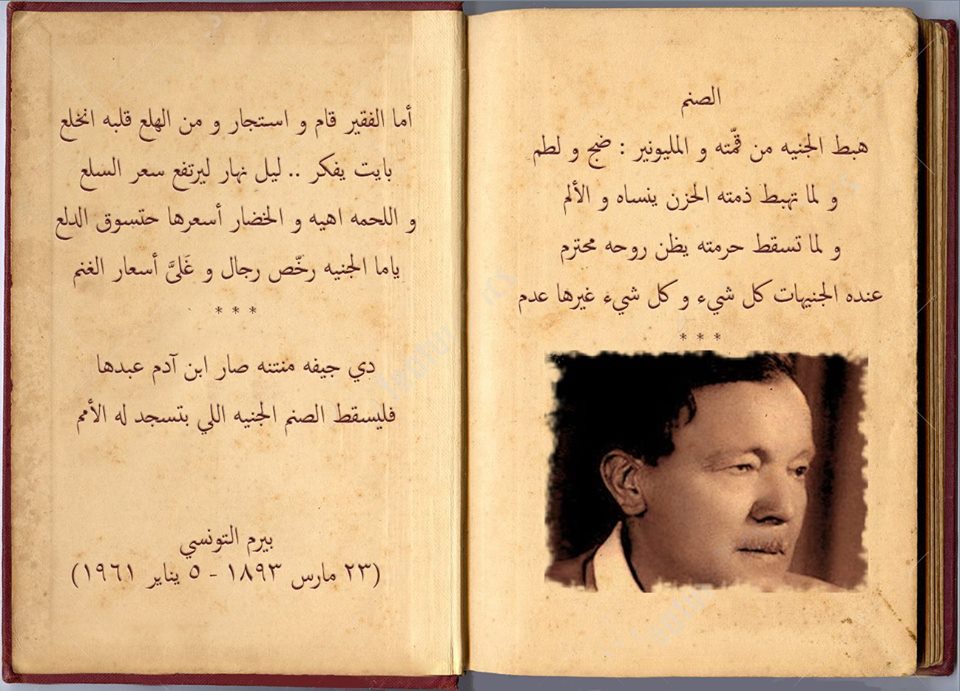 الصنم
هبط الجنيه من قمّته و المليونير : ضج و لطم
و لما تهبط ذمته الحزن ينساه و الألم
و لما تسقط حرمته يظن روحه محترم
عنده الجنيهات كل شيء و كل شيء غيرها عدم
* * *
أما الفقير قام و استجار و من الهلع قلبه انخلع
بايت يفكر .. ليل نهار ليرتفع سعر السلع
و اللحمه اهيه و الخضار أسعرها حتسوق الدلع
ياما الجنيه رخّص رجال و غَلىَّ أسعار الغنم
* * *
دي جيفه منتنه صار ابن آدم عبدها
فليسقط الصنم الجنيه اللي بتسجد له الأمم
بيرم التونسي
(٢٣ مارس ١٨٩٣ - ٥ يناير ١٩٦١)